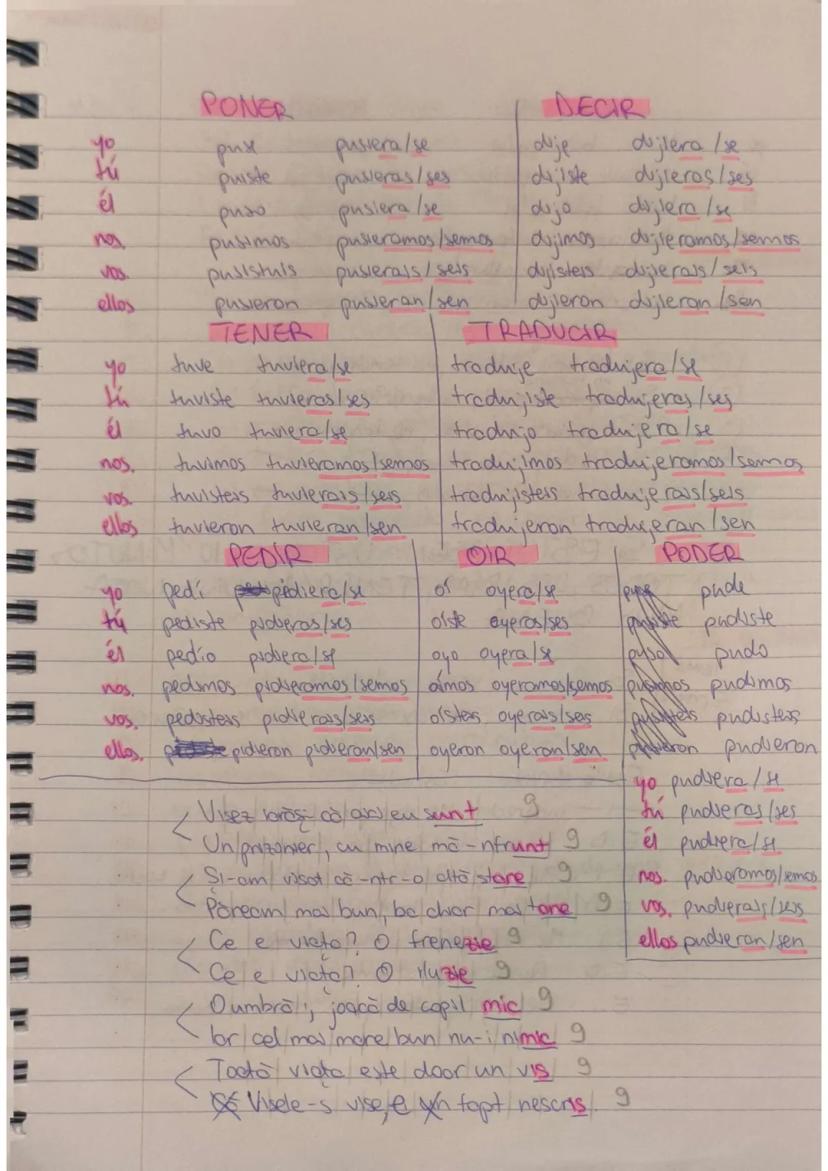 PONER DECIR
yo puse pusiera/se dije dijiera/se
tú puiste pusieras/ses dijiste dijieras/ses
él puso pusiera/se dijo dijiera/se
nos. pusimos pusieramos/semos dijimos dijieramos/semos
vos. pusisteis pusierais/seis dijisteis dijierais/seis
ellos pusieron pusieran/sen dijieron dijieran/sen
TENER TRADUCIR
yo tuve tuviera/se traduje tradujera/se
tú tuviste tuvieras/ses tradujiste tradujeras/ses
él tuvo tuviera/se tradujo tradujera/se
nos. tuvimos tuvieramos/semos tradujimos tradujeramos/semos
vos. tuvisteis tuvierais/seis tradujisteis tradujerais/seis
ellos tuvieron tuvieran/sen tradujeron tradujeran/sen
PEDIR OIR PODER
yo pedí pidiera/se oí oyera/se pude
tú pediste pidieras/ses oíste oyeras/ses pudiste
él pedio pidiera/se oyo oyera/se pudo
nos. pedimos pidieramos/semos oímos oyeramos/semos pudimos
vos. pedisteis pidierais/seis oísteis oyerais/seis pudisteis
ellos. pidieron pidieran/sen oyeron oyeran/sen pudieron
yo pudiera/se
tú pudieras/ses
él pudiera/se
nos. pudieramos/semos
vos. pudierais/seis
ellos pudieran/sen
Visez iarăși că aici eu sunt 9
Un prizonier, cu mine mă-nfrunt 9
Și-am visat că-ntr-o altă stare 9
Păream mai bun, ba chiar mai tare 9
Ce e viața? O frenezie 9
Ce e viața? O iluzie 9
O umbră, joacă de copil mic 9
Iar cel mai mare bun nu-i nimic 9
Toată viața este doar un vis 9
Visele-s vise, e fapt nescris. 9